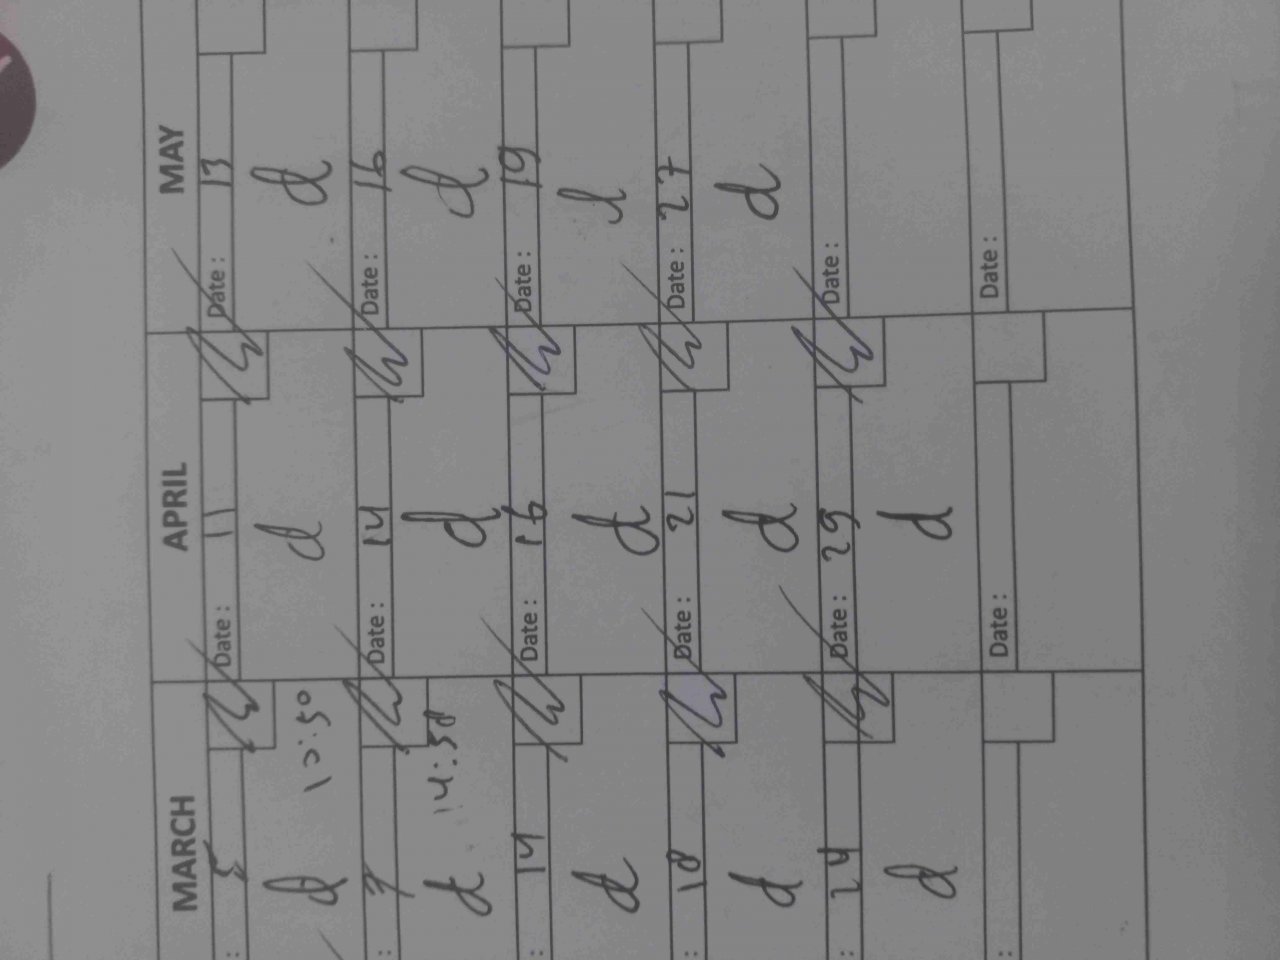 MARCH APRIL MAY
: 5 Date : 11 Date : 13
d 12:50 d d
: 7 Date : 14 Date : 16
d 14:50 d d
: 14 Date : 16 Date : 19
d d d
: 18 Date : 21 Date : 27
d d d
: 24 Date : 29 Date :
d d
: Date : Date :